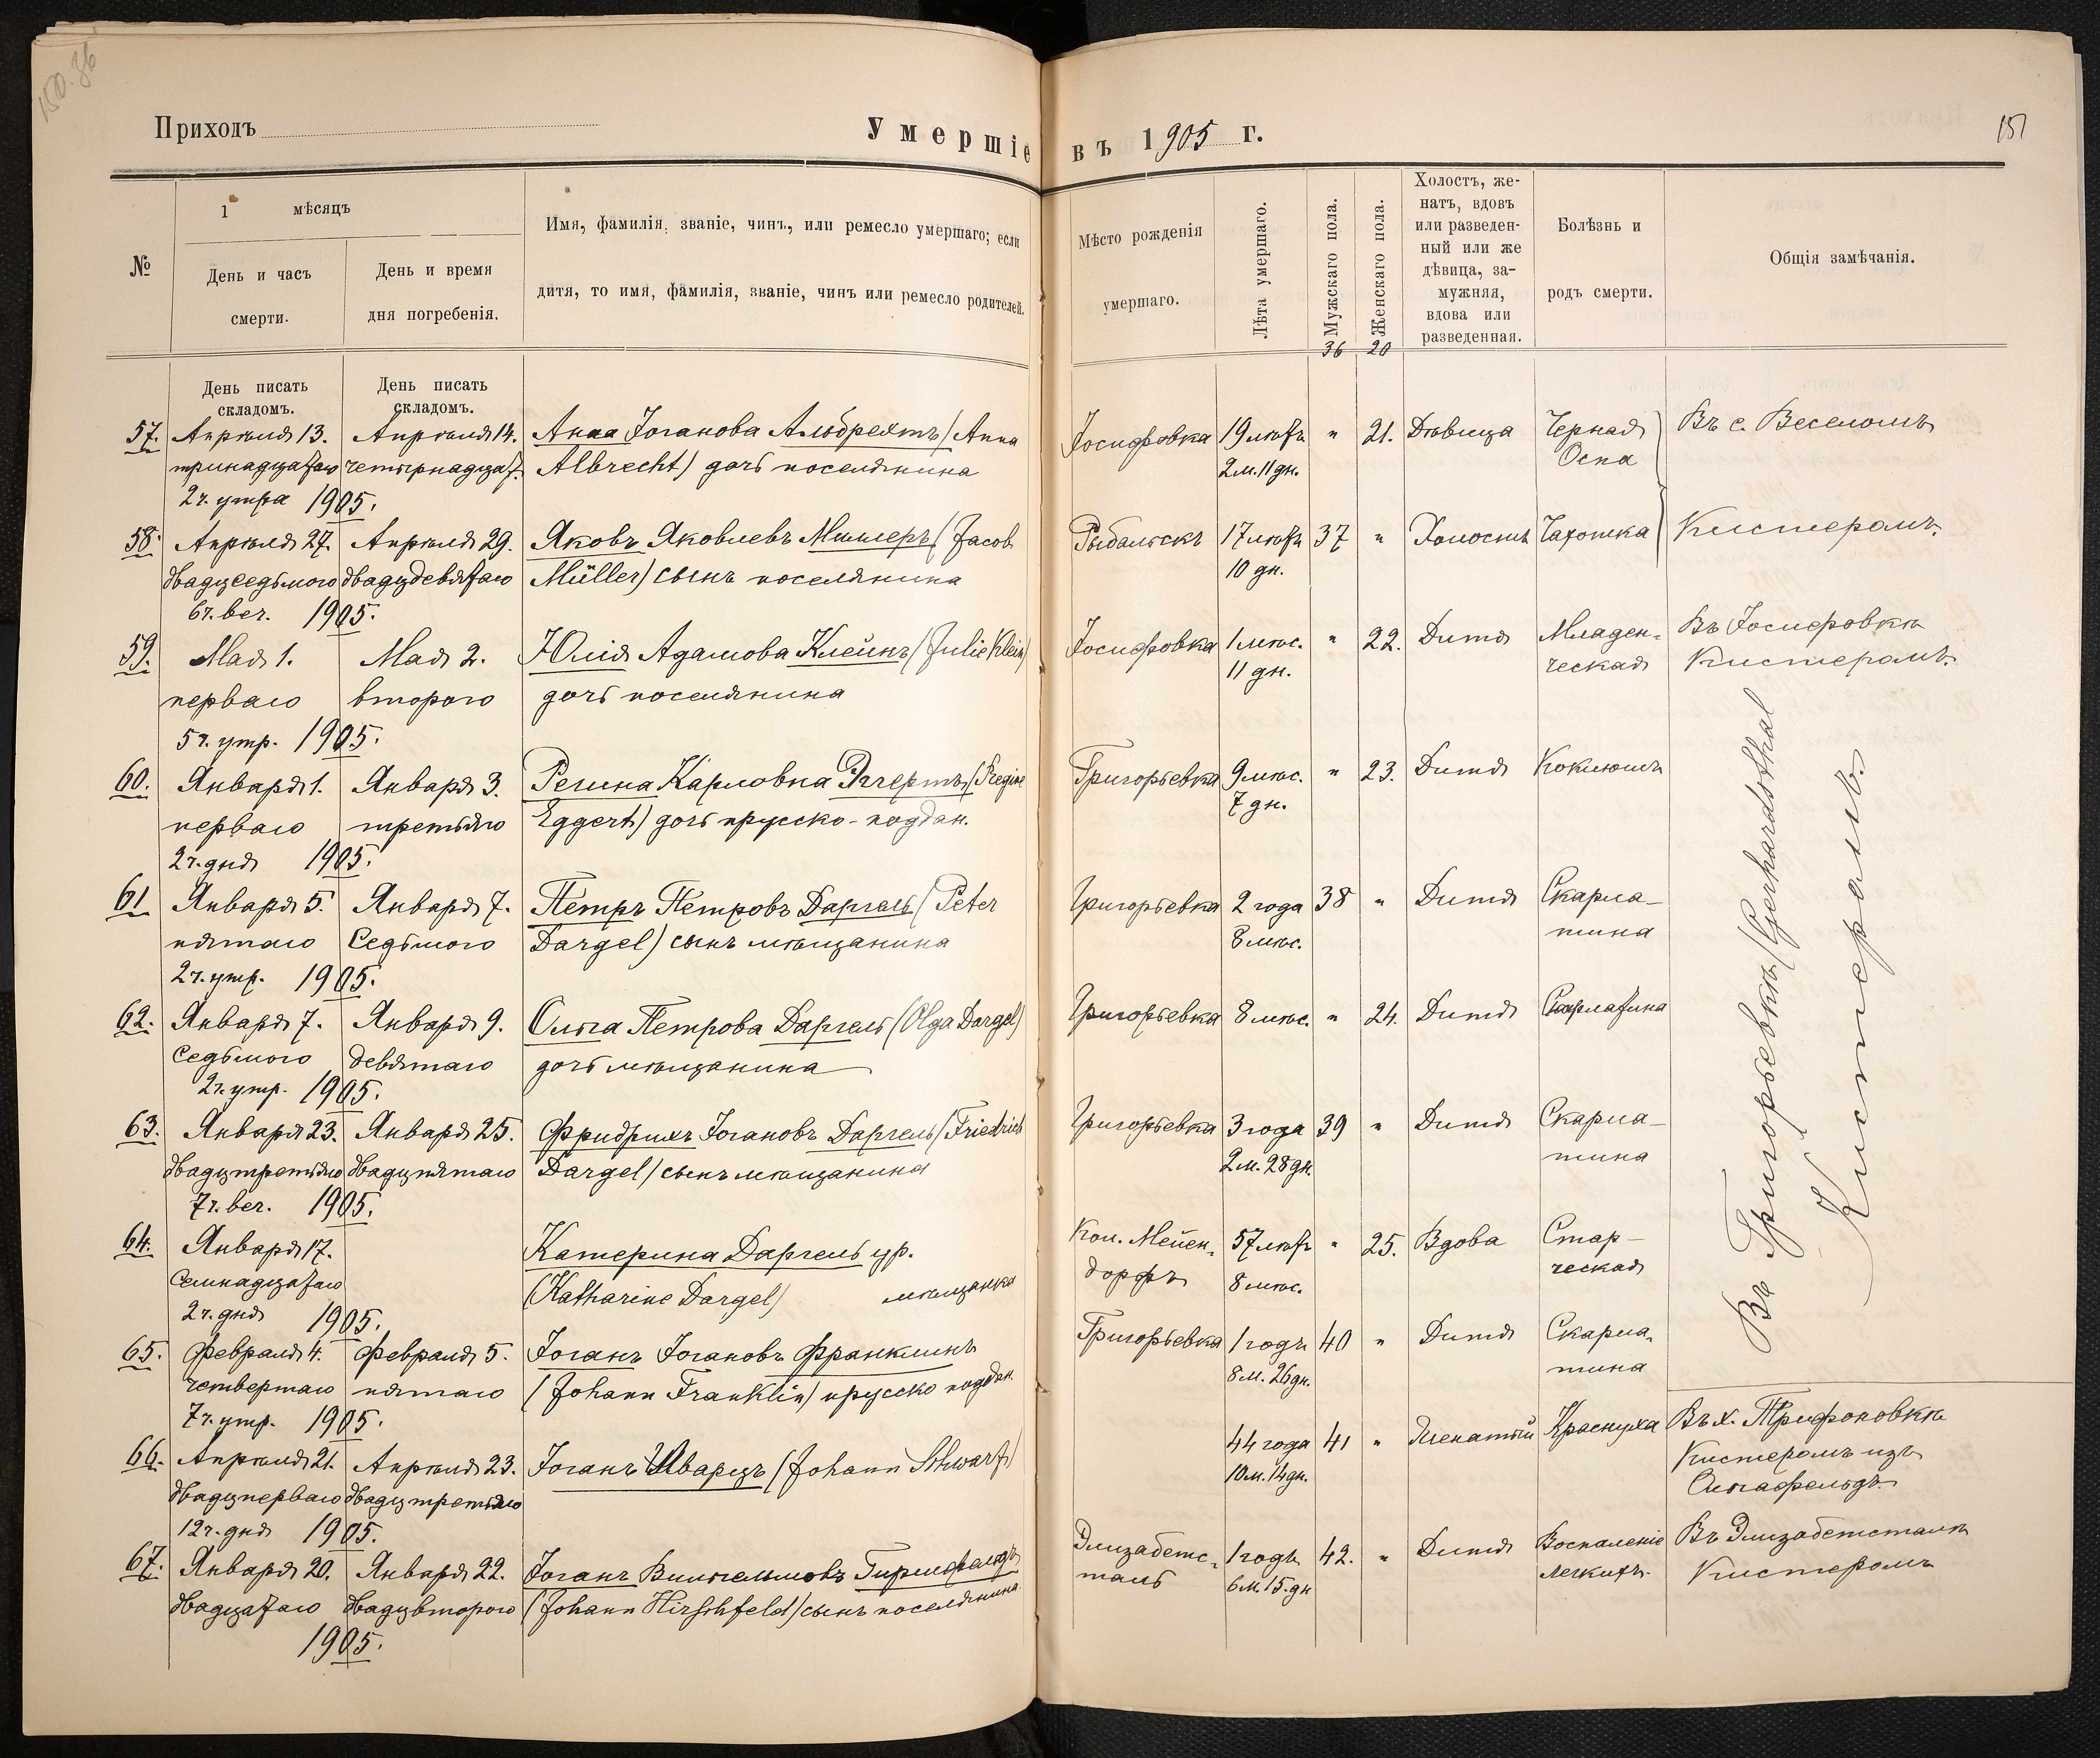 150.36
Приходъ
Умершіе
въ 1905 г.
151
№
1 мѣсяцъ
День и часъ
смерти.
День и время
дня погребенія.
Имя, фамилія, званіе, чинъ, или ремесло умершаго; если
дитя, то имя, фамилія, званіе, чинъ или ремесло родителей.
Мѣсто рожденія
умершаго.
Лѣта умершаго.
Мужскаго пола.
Женскаго пола.
Холостъ, же-
натъ, вдовъ
или разведен-
ный или же
дѣвица, за-
мужняя,
вдова или
разведенная.
Болѣзнь и
родъ смерти.
Общія замѣчанія.
36 20
День писать
складомъ.
День писать
складомъ.
57. Апрѣля 13. Апрѣля 14. Анна Іоганова Альбрехтъ (Anna Іосифовка 19 лѣтъ " 21. Дѣвица Черная Въ с. Веселомъ
тринадцатаго четырнадцат. Albrecht) дочь поселянина 2 м. 11 дн. Оспа
2 ч. утра 1905.
58. Апрѣля 27. Апрѣля 29. Яковъ Яковлевъ Миллеръ (Jacob Рыбальскъ 17 лѣтъ 37 " Холостъ Чахотка Кистеромъ.
двадцседьмого двадцдевятаго Müller) сынъ поселянина 10 дн.
6 ч. веч. 1905.
59. Мая 1. Мая 2. Юлія Адамова Клейнъ (Julie Klein) Іосифовка 1 мѣс. " 22. Дитя Младен- Въ Іосифовкѣ
перваго второго дочь поселянина 11 дн. ческая Кистеромъ.
5 ч. утр. 1905.
60. Января 1. Января 3. Регина Карловна Эггертъ (Regine Григорьевка 9 мѣс. " 23. Дитя Коклюшъ
перваго третьяго Eggert) дочь прусско-поддан. 7 дн.
2 ч. дня 1905.
61. Января 5. Января 7. Петръ Петровъ Даргель (Peter Григорьевка 2 года 38 " Дитя Скарла-
пятаго Седьмого Dargel) сынъ мѣщанина 8 мѣс. тина
2 ч. утр. 1905.
62. Января 7. Января 9. Ольга Петрова Даргель (Olga Dargel) Григорьевка 8 мѣс. " 24. Дитя Скарлатина
Седьмого девятаго дочь мѣщанина
2 ч. утр. 1905.
63. Января 23. Января 25. Фридрихъ Іогановъ Даргель (Friedrich Григорьевка 3 года 39 " Дитя Скарла-
двадцтретьяго двадцпятаго Dargel) сынъ мѣщанина 2 м. 28 дн. тина
7 ч. веч. 1905.
64. Января 17. Катерина Даргель ур. Кол. Мейен- 57 лѣтъ " 25. Вдова Стар-
Семнадцатаго (Katharine Dargel) мѣщанка дорфъ 8 мѣс. ческая
2 ч. дня 1905.
65. Февраля 4. Февраля 5. Іоганъ Іогановъ Франклинъ Григорьевка 1 годъ 40 " Дитя Скарла-
четвертаго пятаго (Johann Franklin) прусско поддан. 8 м. 26 дн. тина
7 ч. утр. 1905.
Въ Григорьевкѣ (Gerhardsthal
Кистеромъ.
66. Апрѣля 21. Апрѣля 23. Іоганъ Шварцъ (Johann Schwarz) 44 года 41 " Женатый Краснуха Въ х. Трифоновкѣ
двадцперваго двадцтретьяго 10 м. 14 дн. Кистеромъ изъ
12 ч. дня 1905. Ольгафельдъ.
67. Января 20. Января 22. Іоганъ Вильгельмовъ Гиршфельдъ Элизабетс- 1 годъ 42. " Дитя Воспаленіе Въ Элизабетсталѣ
двадцатаго двадцвторого (Johann Hirschfeld) сынъ поселянина таль 6 м. 15 дн легкихъ. Кистеромъ
1905.